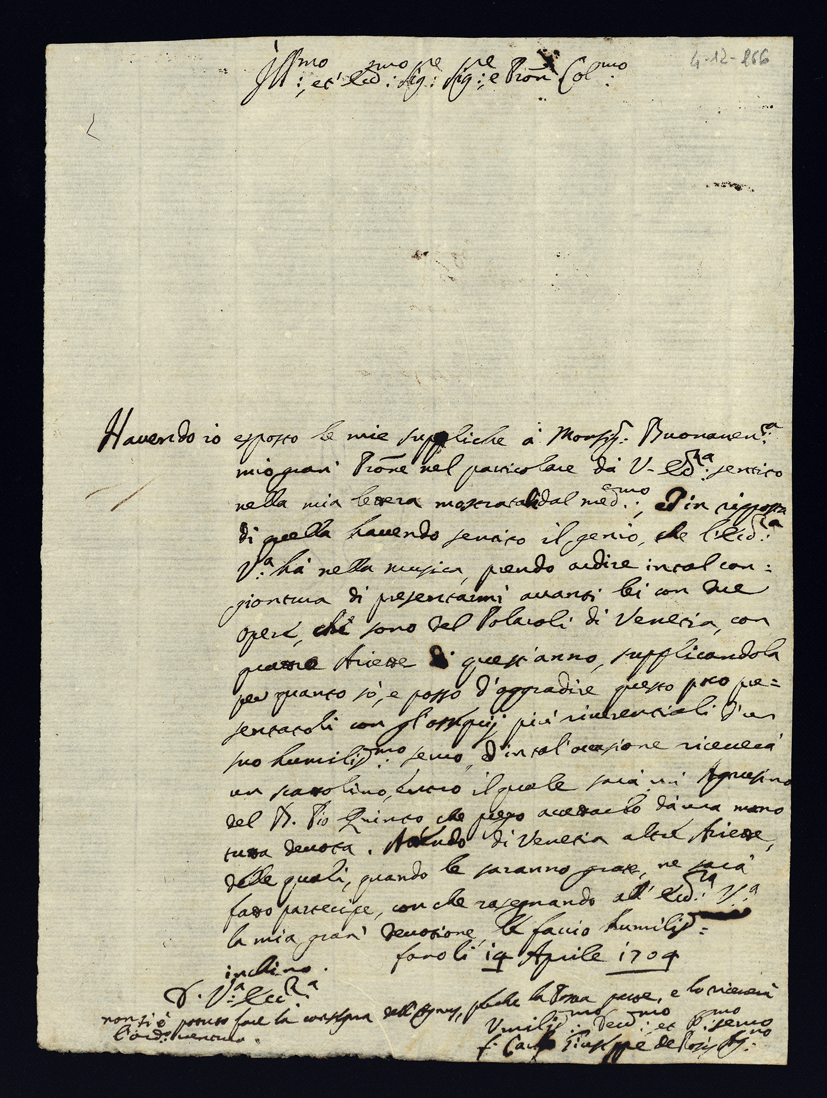 4-12-266
Ill:mo, et Ecc:mo Sig:re Sig:re, e Pron Col:mo
Havendo io esposto le mie suppliche à Monsig:r Buonaven:a
mio gran' Prone nel particolare da V. Ecc:za sentito
nella mia lettera mostratali dal med:mo, et in risposta
di quella havendo sentito il genio, che l'Ecc:za
V:a hà nella musica, prendo ardire in tal con=
giontura di presentarmi avanti lei con due
opere, che sono del Polaroli di Venezia, con
quattro Ariette di quest'anno, supplicandola
per quanto sò, e posso d'aggradire questo poco pre=
sentatoli con gl'ossequij più riverentiali d'un
suo humiliss:mo servo, d'in tal'occasione riceverà
un scattolino, entro il quale sarà un Agnusino
del B. Pio Quinto che prego accettarlo da una mano
tutta devota. di Venezia altre Ariette,
delle quali, quando le saranno grate, ne sarà
fatto partecipe, con che rasegnando all'Ecc:za V:a
la mia gran' devozione, le faccio humiliss=
inchino. Faroli 14 Aprile 1704
D. V:a Ecc:za
non si è potuto fare la consegna dell'Agnus, perche la Posta parte, e lo riceverà
l'ord: venturo.
Umiliss:mo Dev:mo et Obl:mo servo
f. Carlo Giuseppe de